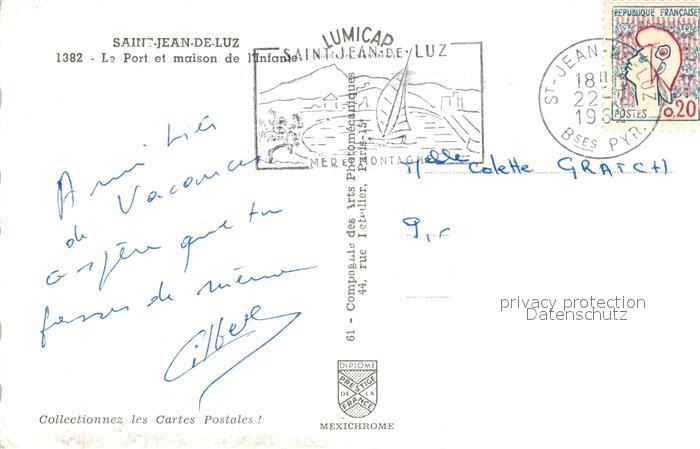 SAINT-JEAN-DE-LUZ
1382 - Le Port et maison de l'Infante
LUMICAP
SAINT JEAN-DE-LUZ
MER ET MONTAGNE
ST-JEAN-DE-LUZ
18H
22-
196
Bses PYR.
REPUBLIQUE FRANÇAISE
POSTES
0,20
Amitiés
de Vacances
que tu
fasses de même
Gilbert
Melle Colette GRATCH
9, -
privacy protection
Datenschutz
61 - Compagnie des Arts Photomécaniques
44, rue Letellier, Paris-15
DIPLOME
PRESTIGE
DE LA
FRANCE
MEXICHROME
Collectionnez les Cartes Postales !